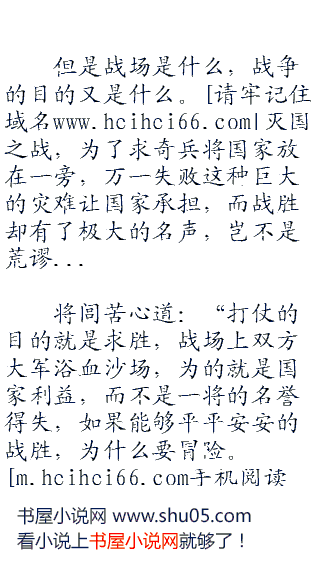 但是战场是什么，战争
的目的又是什么。[请牢记住
域名www.hcihci66.com|灭国
之战，为了求奇兵将国家放
在一旁，万一失败这种巨大
的灾难让国家承担，而战胜
却有了极大的名声，岂不是
荒谬...
将闾苦心道：“打仗的
目的就是求胜，战场上双方
大军浴血沙场，为的就是国
家利益，而不是一将的名誉
得失，如果能够平平安安的
战胜，为什么要冒险。
[m.hcihci66.com手机阅读
书屋小说网 www.shu05.com
看小说上书屋小说网就够了！